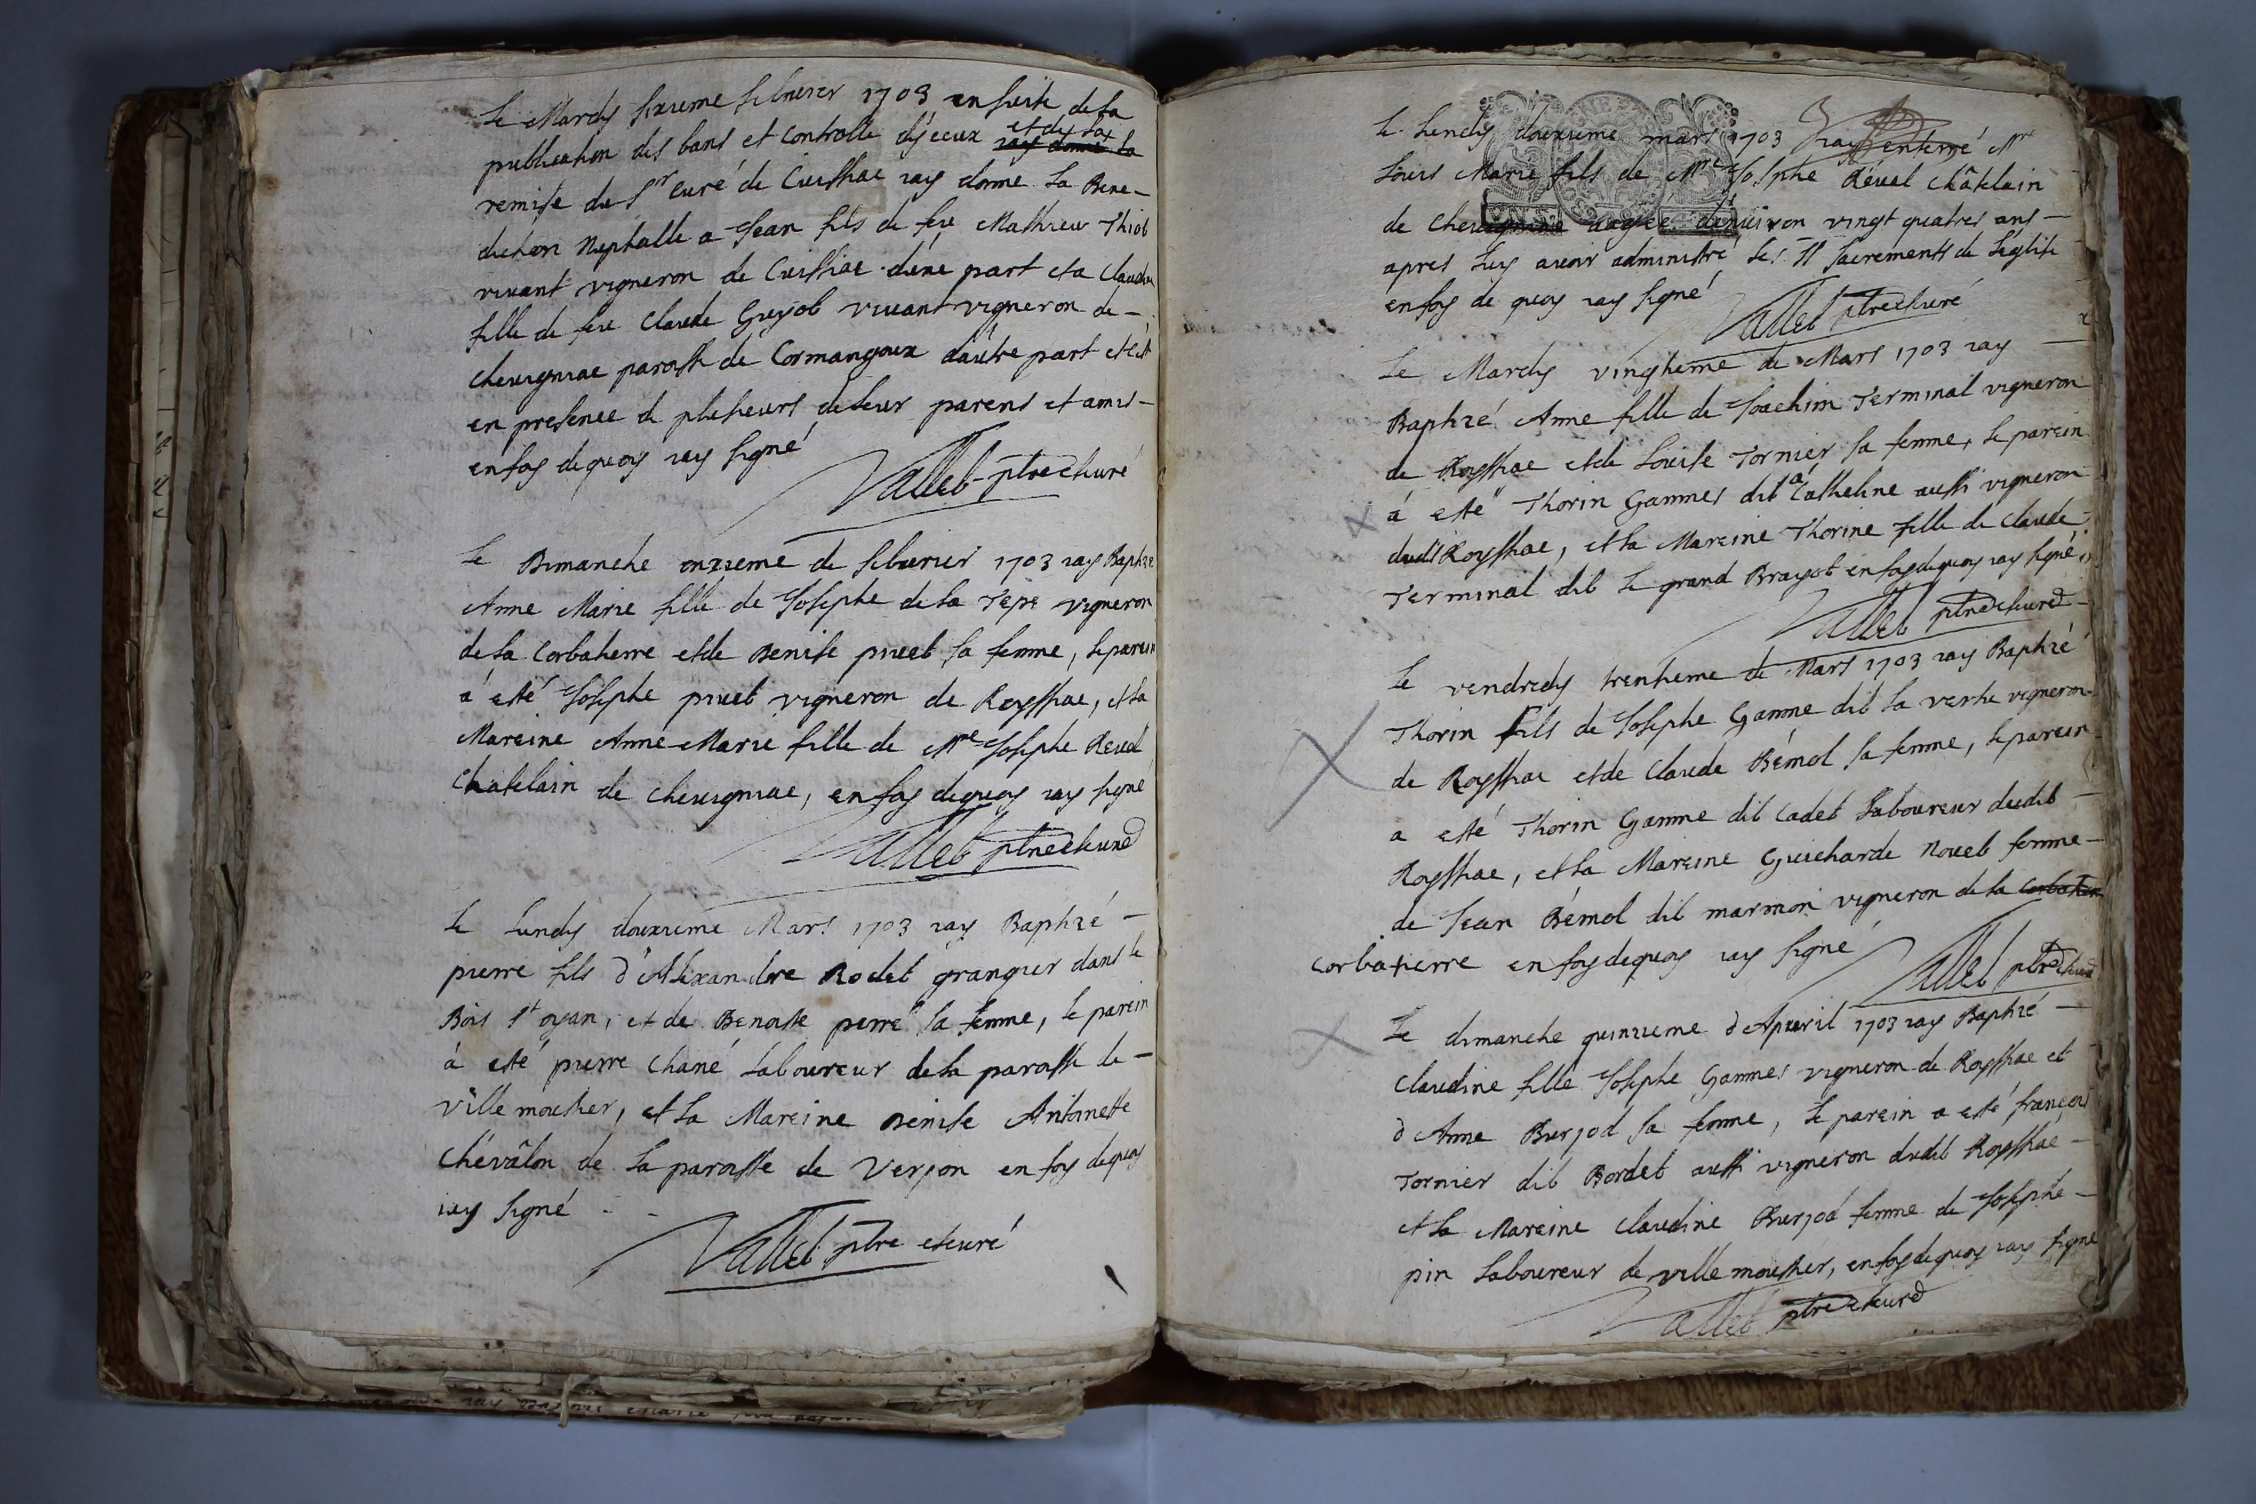 Le Mardy sixieme febvrier 1703 en suite de la
publication des bans et controlle d'yceux et de la
remise du Sr curé de Cuissiat iay donné la Bene-
diction Nuptialle a Jean fils de feu Mathieu Thiot
vivant vigneron de Cuissiat d'une part et a Claudine
fille de feu Claude Guyot vivant vigneron de -
Chevigniat paroisse de Cormangoux d'autre part et cest
en presence de plusieurs de leur parens et amis -
en foy de quoy iay signé
Vallet ptre et curé
Le Dimanche onzieme de febvrier 1703 iay Baptizé
Anne Marie fille de Josephe de la Teps vigneron
de la Corbatierre et de Denise pruet sa femme, le parein
á esté Josephe pruet vigneron de Royssiat, et la
Mareine Anne Marie fille de Mre Josephe Revel
Chatelain de Chevigniat, en foy de quoy iay signé
Vallet ptre et curé
Le Lundy douzieme Mars 1703 iay Baptizé -
pierre fils d'Alexandre Rodet grangier dans le
Bois St oyan, et de Benoiste perret sa femme, le parein
á esté pierre Chané laboureur de la paroisse de -
Villemoutier, et la Mareine Denise Antoinette
Chévâlon de la paroisse de Verjon en foy de quoy
iay signé
Vallet ptre et curé
Le Lundy douzieme mars 1703 iay enterré Mre
Louis Marie fils de Mre Josephe Révél Châtelain
de Chevigniat aagéé denviron vingt quatres ans -
apres luy avoir administré les SS Sacrements de l'église
en foy de quoy iay signé
Vallet ptre et curé
Le Mardy vingtieme de Mars 1703 iay -
Baptizé Anne fille de Joachim Terminal vigneron
de Royssiat et de Louise Tornier sa femme, le parein
á esté Thorin Gammes dit á Catheline aussi vigneron
dudit Royssiat, et la Mareine Thorine fille de Claude
Terminal dit le grand Brayot en foy de quoy iay signé
Vallet ptre et curé
Le vendredy trentieme de Mars 1703 iay Baptizé
Thorin fils de Josephe Gamme dit la verte vigneron
de Royssiat et de Claude Bémol sa femme, le parein
a esté Thorin Gamme dit Cadet laboureur dudit -
Royssiat, et la Mareine Guicharde Novet femme -
de Jean Bémol dit marmon vigneron de la Corbatierre
Corbatierre en foy de quoy iay signé
Vallet ptre et curé
Le dimanche quinzieme d'Apvril 1703 iay Baptizé -
Claudine fille Josephe Gammes vigneron de Royssiat et
d'Anne Burjod sa femme, le parein a esté françois
Tornier dit Bordet aussi vigneron dudit Royssiat -
et la Mareine Claudine Burjod femme de Josephe -
pin laboureur de villemoutier, en foy de quoy iay signé
Vallet ptre et curé